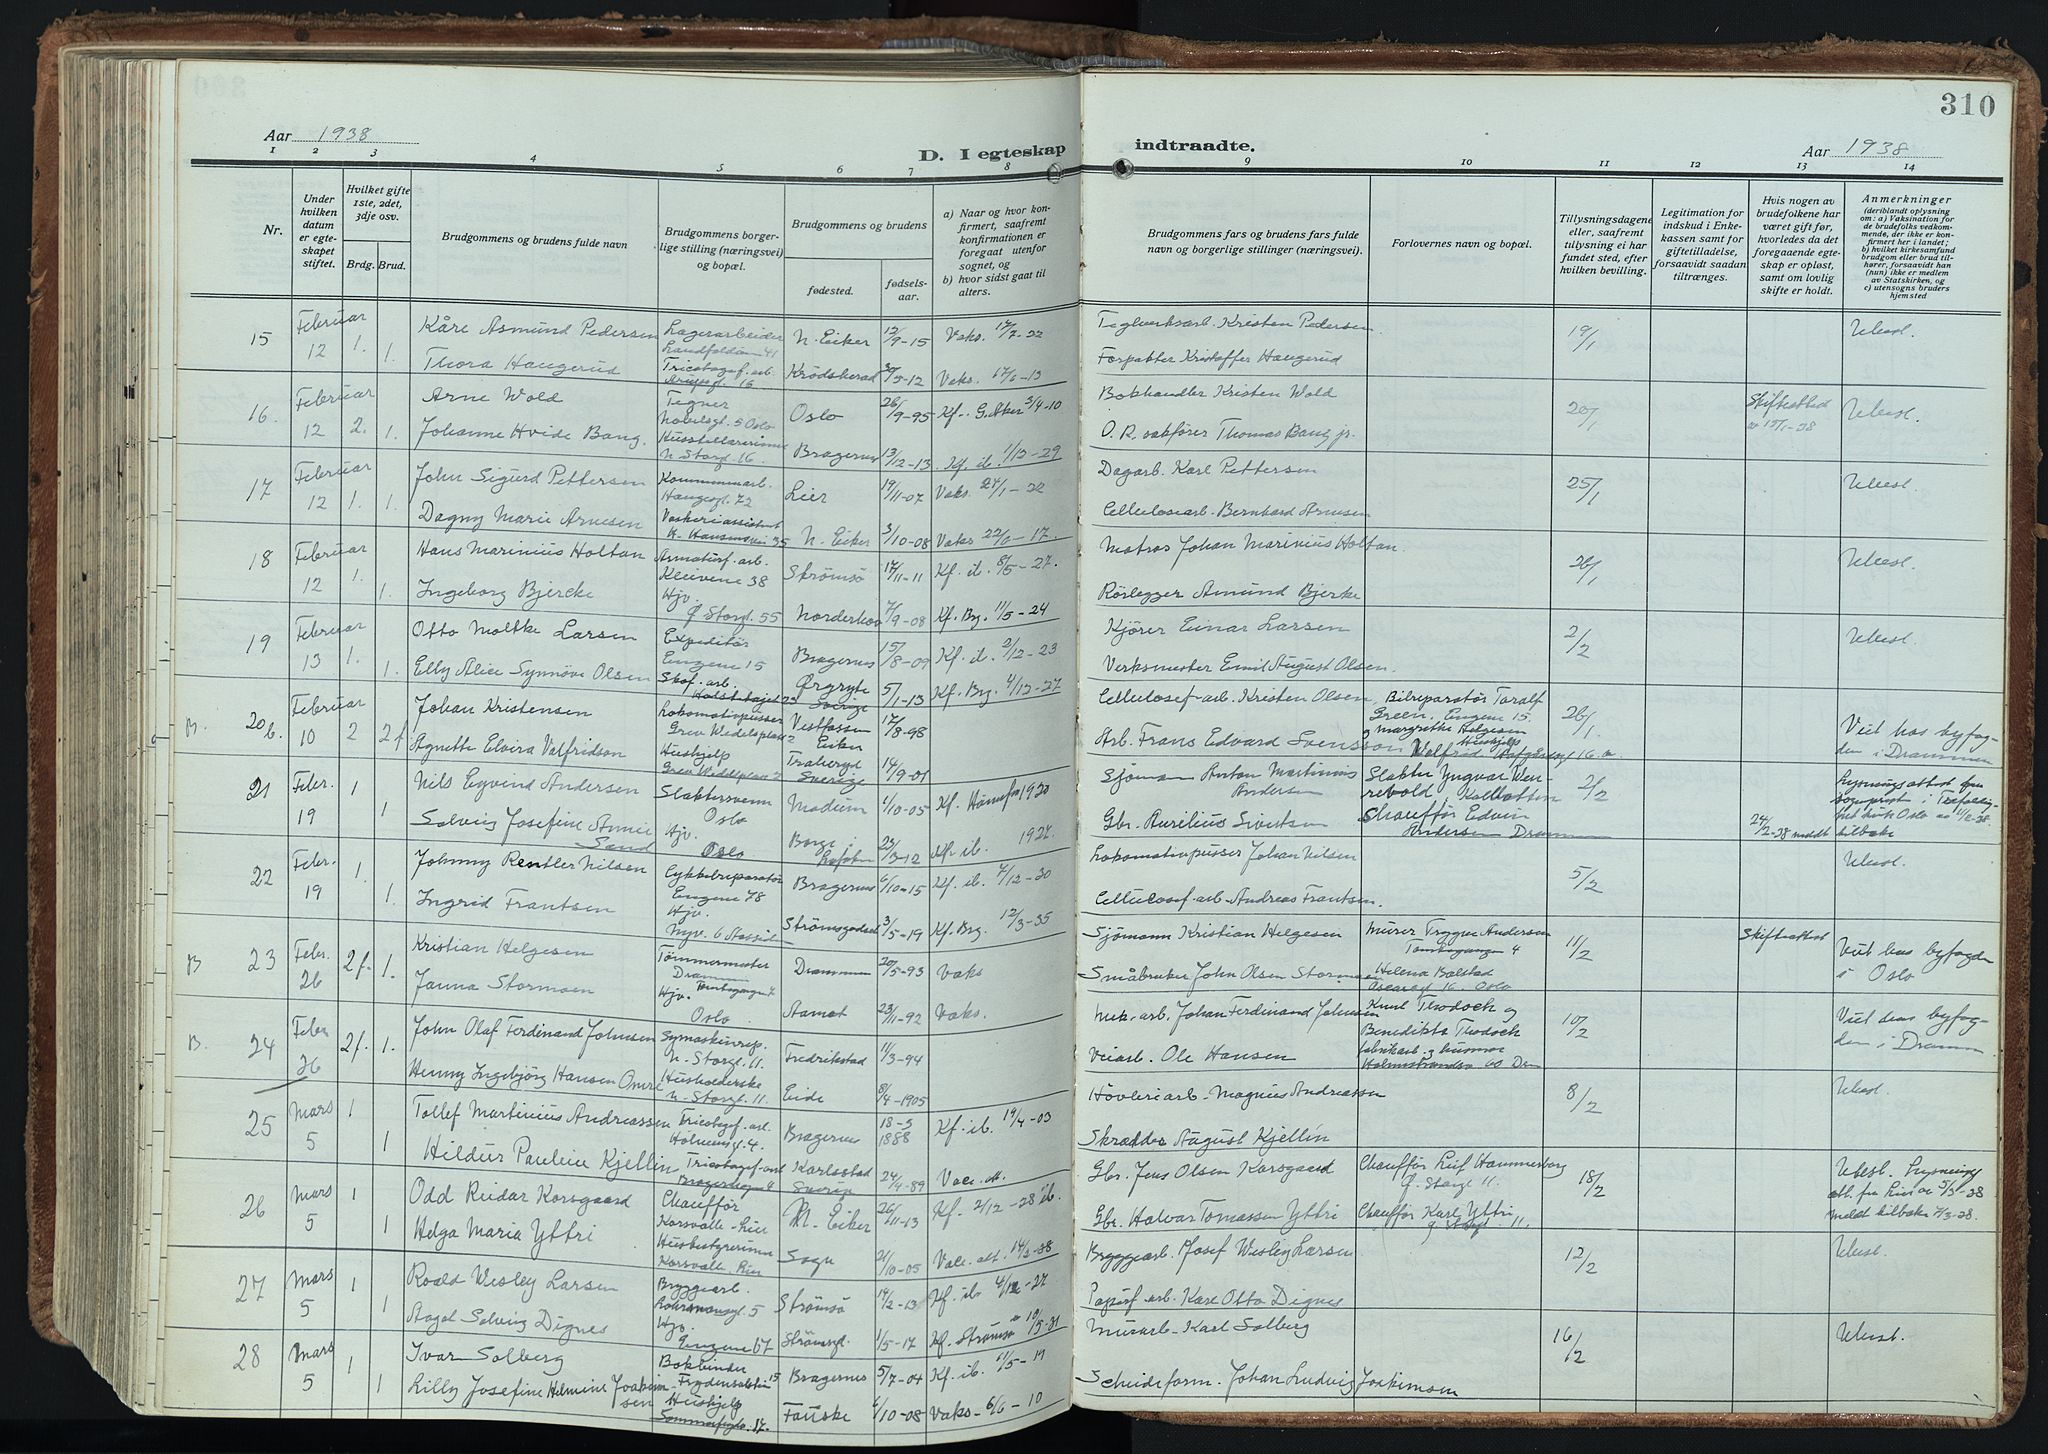 310
Aar 1938
D. I egteskap indtraadte.
Aar 1938
1 2 3 4 5 6 7 8 9 10 11 12 13 14
Nr.
Under hvilken datum er egteskapet stiftet.
Hvilket gifte 1ste, 2det, 3dje osv.
Brdg. Brud.
Brudgommens og brudens fulde navn
Brudgommens borgerlige stilling (næringsvei) og bopæl.
Brudgommens og brudens
fødested.
fødselsaar.
a) Naar og hvor konfirmert, saafremt konfirmationen er foregaat utenfor sognet, og
b) hvor sidst gaat til alters.
Brudgommens fars og brudens fars fulde navn og borgerlige stillinger (næringsvei).
Forlovernes navn og bopæl.
Tillysningsdagene eller, saafremt tillysning ei har fundet sted, efter hvilken bevilling.
Legitimation for indskud i Enkekassen samt for giftetilladelse, forsaavidt saadan tiltrænges.
Hvis nogen av brudefolkene har været gift før, hvorledes da det foregaaende egteskap er opløst, samt om lovlig skifte er holdt.
Anmerkninger
(deriblandt oplysning om: a) Vaksination for de brudefolks vedkommende, der ikke er konfirmert her i landet; b) hvilket kirkesamfund brudgom eller brud tilhører, forsaavidt han (hun) ikke er medlem av Statskirken, og c) utensogns bruders hjemsted
15 Februar 12 1. Kåre Asmund Pedersen Lagerarbeider N. Eiker 12/9-15 Vaks. 17/7-22 Teglverksarb. Kristen Pedersen 19/1 Ubesl.
1. Thora Haugerud Tricotagef. arb. Krødsherad Vaks. 17/6-13 Forpakter Kristoffer Haugerud
16. Februar 12 2. Arne Wold Tegner Nobelsgt. 5 Oslo Oslo 26/9-95 Kf. G. Aker 3/4-10 Bokhandler Kristen Wold 20/1 Skifteattest Ubesl.
1. Johanne Hvide Bang. N. Storgt. 16. Bragernes 13/12-13 Kf. ib. 1/12-29 O. R. sakfører Thomas Bang jr.
17 Februar 12 1. John Sigurd Pettersen Kommunearb. Haugesgt. 72 Lier 19/11-07 Vaks. 24/1-22 Dagarb. Karl Pettersen 25/1 Ubesl.
1. Dagny Marie Arnesen Vaskeriassistent N. Eiker 3/10-08 Vaks 22/6-17. Cellulosearb. Bernhard Arnesen
18 Februar 12 1. Hans Marinius Holtan Armaturf. arb. Kleivene 38 Strømsø 17/11-11 Kf. ib. 8/5-27. Matros Johan Marinius Holtan. 26/1 Ubesl.
1. Ingeborg Bjercke Hjv. Ø. Storgt. 55 Norderhov 7/9-08 Kf. Br. 11/5-24 Rørlegger Amund Bjerke
19 Februar 13 1. Otto Moltke Larsen Expeditør Engene 15 Bragernes 15/8-09 Kf. ib. 2/12-23 Kjører Einar Larsen 2/2 Ubesl.
1. Elby Alice Synnøve Olsen Skof. arb. Ørgryte Sverige 5/1-13 Kf. Br. 4/12-27 Verksmester Emil August Olsen.
B. 20b. Februar 10 2 Johan Kristensen Lokomotivpusser Grev Wedelsplass 2 Vestfossen Eiker 17/8-98 Cellulosef-arb. Kristen Olsen Bilreparatør Toralf Green, Engene 15. 26/1 Viet hos byfogden i Drammen
2f Agnethe Elvira Valfridson Hushjelp Sverige 14/9-01 Arb. Frans Edvard Svensson
21 Febr. 19 1 Nils Eyvind Andersen Slaktersvenn Oslo Modum 1/10-05 Kf. Hønefoss 1920 Sjømann Anton Martinius Andersen Slakter Yngvar 2/2
1 Solveig Josefine Annie Sand Hjv. Oslo Borge i Lofoten 23/3-12 Kf. ib. 1927. Gbr. Aurilius Sivertsen Chauffør Edvin Andersen Drammen
22 Febr. 19 1. Johnny Rentler Nilsen Cykkelreparatør Engene 78 Bragernes 6/10-15 Kf. ib. 7/12-30 Lokomotivpusser Johan Nilsen 5/2 Ubesl.
1. Ingrid Frantsen Hjv. Strømsgodset 3/5-19 Kf. Brg. 12/3-35 Cellulosef-arb. Andreas Frantsen.
B 23 Febr. 26 2f. Kristian Helgesen Tømmermester Drammen Drammen 20/5-93 Vaks Sjømann Kristian Helgesen Murer Trygve Andersen 11/2 Skifteattest Viet hos byfogden i Oslo
1. Janna Stormoen Hjv. Oslo Aamot 23/11-92 Vaks. Småbruker John Olsen Stormoen Helena Bolstad Oscarsgt 16. Oslo
B. 24 Febr 26 2f. John Olaf Ferdinand Johnsen Symaskinrep. N. Storgt. 11. Fredrikstad 11/3-94 Mek. arb. Johan Ferdinand Johnsen 10/2 Viet hos byfogden i Dramm
1. Henny Ingebjørg Hansen Husholderske N. Storgt. 11. Eide 8/4-1905 Veiarb. Ole Hansen
25 Mars 5 1 Tollef Martinius Andreassen Tricotagef. arb. Bragernes 18-5 1888 Kf. ib. 19/4-03 Høvleriarb. Magnus Andreassen 8/2 Ubesl.
1 Hildur Pauline Kjellin Tricotagef-arb Karlsstad Sverige 24/4-89 Vacc. att. Skrædder August Kjellin
26 Mars 5 1 Odd Reidar Korsgaard Chauffør N. Eiker 26/11-13 Kf. 2/12-28 ib. Gbr. Jens Olsen Korsgaard Chauffør Leif Hammerborg Ø. Storgt 11. 18/2 Ubesl.
1 Helga Maria Yttri Sogn 21/10-05 Vacc. att. Gbr. Halvar Tomassen Yttri Chauffør Karl Yttri
27 Mars 5 1 Roald Wesley Larsen Bryggeiarb. Strømsø 14/2-13 Kf. ib 4/12-27 Bryggeiarb. Josef Wesley Larsen 12/2 Ubesl.
1 Aagot Solveig Dignes Hjv. Engene 67 Strømsgt. 1/5-17 Kf. Strømsø 10/5-31 Papirf. arb. Karl Otto Dignes
28 Mars 5 1 Ivar Solberg Bokbinder Bragernes 5/7-04 Kf. ib. Murarb. Karl Solberg 16/2 Ubesl.
1 Lilly Josefine Helmine Joakimsen Hushjelp Fauske 6/10-08 Vaks. 6/6-10 Scheideform. Johan Ludvig Joakimsen